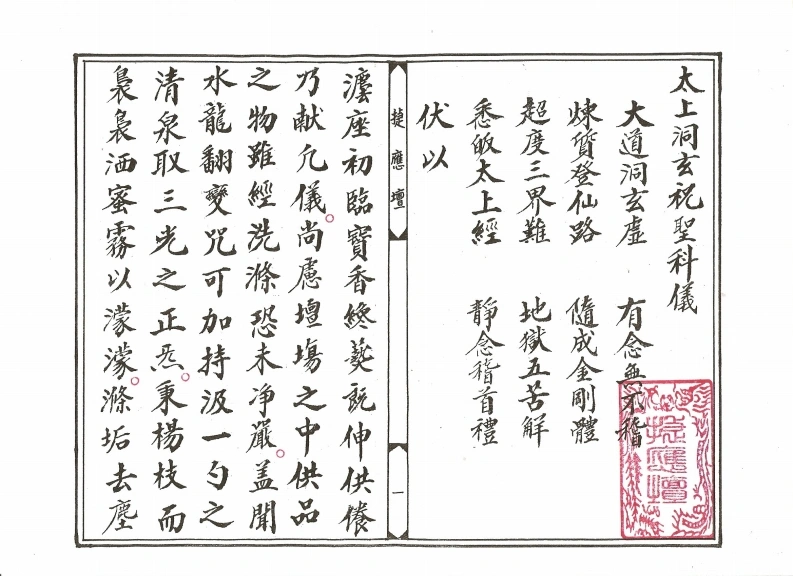 太上洞玄祝聖科儀
大道洞玄虛　有念無不稽
煉質登仙路　隨成金剛體
超度三界難　地獄五苦解
悉皈太上經　靜念稽首禮
伏以
捷應壇
一
座初臨寶香終爇既伸供養
乃献凢儀。尚慮壇塲之中供品
之物雖經洗滌恐未净嚴。盖聞
水龍翻變咒可加持汲一勺之
清泉取三光之正炁。秉楊枝而
裊裊洒蜜霧以濛濛。滌垢去塵
捷應壇